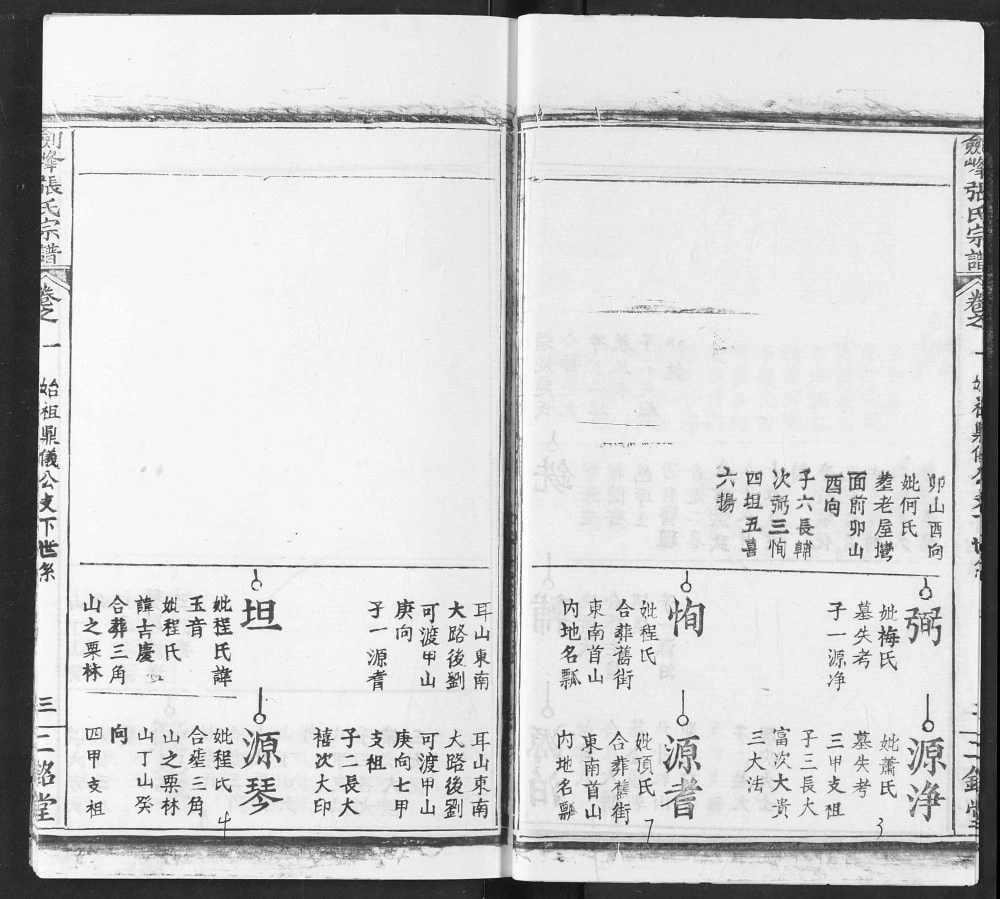 劍峰張氏宗譜
卷之一
卯山酉向
妣何氏
塟老屋塆
面前卯山
酉向
子六長輔
次弼三恂
四坦五喜
六揚
弼
妣梅氏
墓失考
子一源净
恂
妣程氏
合葬舊街
東南首山
内地名瓢
源净
妣蕭氏
墓失考
三甲支祖
子三長大
富次大貴
三大法
源耆
妣項氏
合葬舊街
東南首山
内地名瓢
3
7
耳山東南
大路後劉
可渡甲山
庚向
子一源耆
坦
妣程氏諱
玉音
妣程氏
諱吉慶
合葬三角
山之栗林
耳山東南
大路後劉
可渡甲山
庚向七甲
支祖
子二長大
禧次大印
源琴
妣程氏
合塟三角
山之栗林
山丁山癸
向
四甲支祖
4
劍峰張氏宗譜
卷之一
始祖鼎儀公支下世系
三
二銘堂